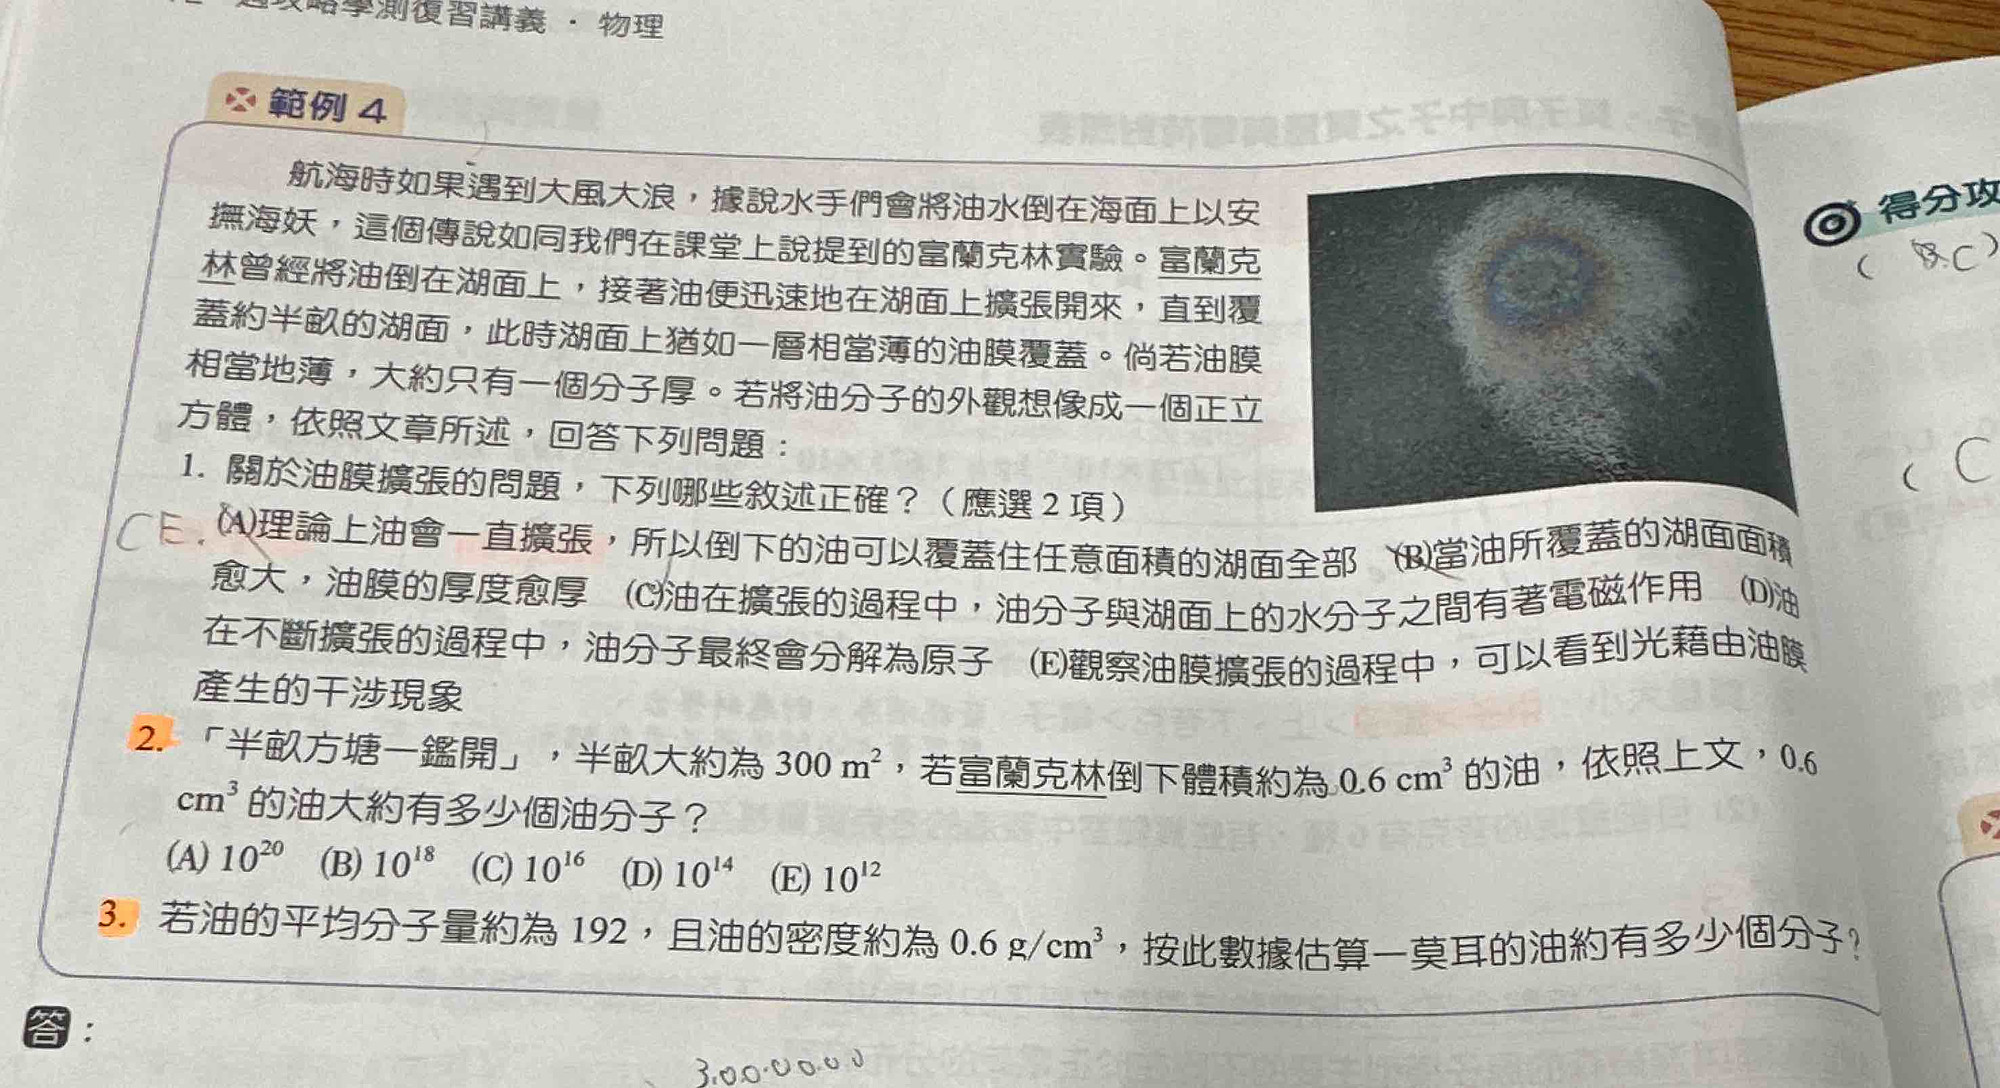 過攻略學測復習講義・物理
範例 4
得分攻
航海時如果遇到大風大浪，據說水手們會將油水倒在海面上以安
撫海妖，這個傳說如同我們在課堂上說提到的富蘭克林實驗。富蘭克
林曾經將油倒在湖面上，接著油便迅速地在湖面上擴張開來，直到覆
蓋約半畝的湖面，此時湖面上猶如一層相當薄的油膜覆蓋。倘若油膜
相當地薄，大約只有一個分子厚。若將油分子的外觀想像成一個正立
方體，依照文章所述，回答下列問題：
( C
1. 關於油膜擴張的問題，下列哪些敘述正確？（應選 2 項）
CE. (A)理論上油會一直擴張，所以倒下的油可以覆蓋住任意面積的湖面全部 (B)當油所覆蓋的湖面面積
愈大，油膜的厚度愈厚 (C)油在擴張的過程中，油分子與湖面上的水分子之間有著電磁作用 (D)油
在不斷擴張的過程中，油分子最終會分解為原子 (E)觀察油膜擴張的過程中，可以看到光藉由油膜
產生的干涉現象
2. 「半畝方塘一鑑開」，半畝大約為 300 m²，若富蘭克林倒下體積約為 0.6 cm³ 的油，依照上文，0.6
cm³ 的油大約有多少個油分子？
(A) 10²⁰ (B) 10¹⁸ (C) 10¹⁶ (D) 10¹⁴ (E) 10¹²
3. 若油的平均分子量約為 192，且油的密度約為 0.6 g/cm³，按此數據估算一莫耳的油約有多少個分子？
答：